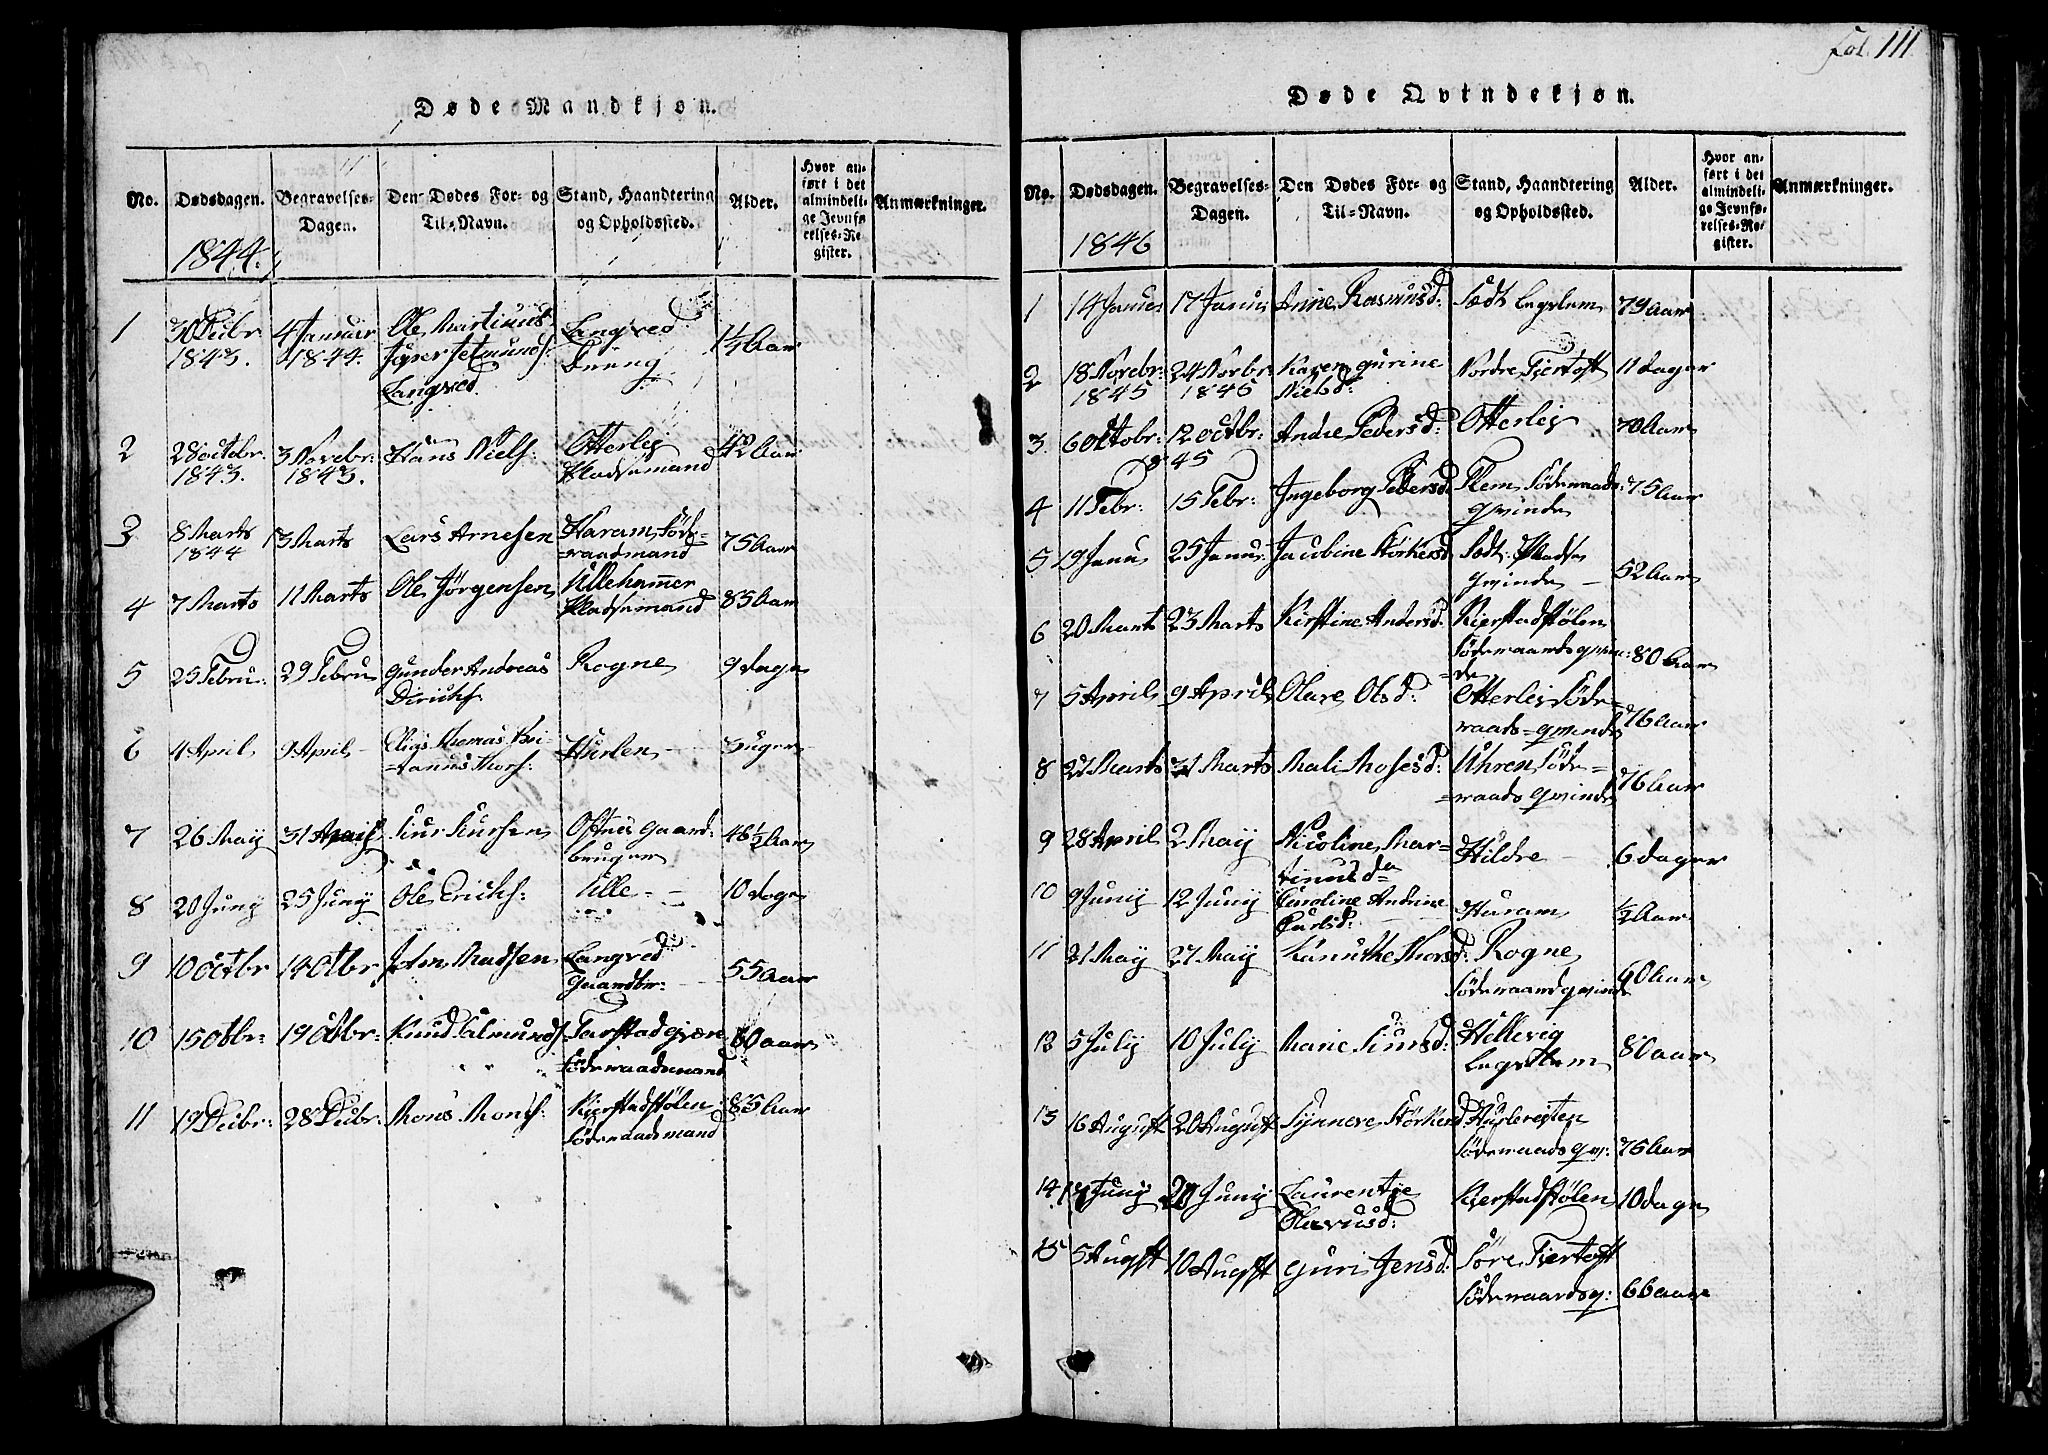 Døde Mandkjøn.
No. Dødsdagen. Begravelses-Dagen. Den Dødes For- og Til-Navn. Stand, Haandtering og Opholdssted. Alder. Hvor anført i det almindelige Jevnførelses-Register. Anmærkninger.
1844.
1 30 Decbr 1843. 4 Januar 1844. Ole Martinus Langved 1¼ Aar
Langved
2 28 octbr 1843. 3 Novebr: 1843. Hans Niels: Otterlej Pladsemand 42 Aar
3 8 Marts 1844 13 Marts Lars Arnesen Haram Föde=
=raadmand 75 Aar
4 7 Marts 11 Marts Ole Jörgensen Ullehamer Pladsemand 83 Aar
5 25 Febru: 29 Febru Gunder Andreas Rogne 9 dage
Dirichs
6 4 April 9 April Elias Thomas Kri=
=tanus Thors: Hurlen 3 uger
7 26 May 31 Siur Siursen Ofnes Gaard:
bruger 46½ Aar
8 20 Juny 25 Juny Ole Erichs: Ulle 10 dage
9 10 Octbr 14 Otbr John Madsen Langved
Gaardbr: 55 Aar
10 15 Otbr: 19 Octbr: Knud Salmunds Farstadgjæn
Föderaadsmand 60 aar
11 19 Decbr: 28 Decbr: Mons Mons: Kjerstadstölen
Föderaadsmand 83 Aar
Fol. 111
Døde Qvindekjøn.
No. Dødsdagen. Begravelses-Dagen. Den Dødes For- og Til-Navn. Stand, Haandtering og Opholdssted. Alder. Hvor anført i det almindelige Jevnførelses-Register. Anmærkninger.
1846
1 14 Janua 17 Janu Anne Rasmusd: Sædt Legdlem 79 Aar
2 18 Novebr: 1845 24 Novbr 1845 Karen Gurine
Nielsd: Nordre Fjertoft 11 dager
3. 6 Octobr: 12 octbr: 1845 Andre Pedersd: Otterlej 70 Aar
4 11 Febr: 15 Febr: Ingeborg Pedersd Flem Föderaads:
qvinde 75 Aar
5 19 Janu 25 Janu: Jacobine Störkersd Sædt: Pladse
qvinde 52 Aar
6 20 Marts 23 Marts Kirstine Andersd. Kjerstadstölen
Föderaadsqvin:
=de 80 Aar
7 5 April 9 April Olave Olsd: Otterlej Föde=
raads=qvinde 76 Aar
8 27 Marts 31 Marts Mali Mosesd: Uhren Föde=
=raads qvinde 76 Aar
9 28 April 2 May Nicoline Mar=
tinusda Hildre 6 dager
10 9 Juny 12 Juny Caroline Andrine
Carlsd: Haram ½ Aar
11 21 May 27 May Kanuthe Thorsd: Rogne
Föderaadqvinde 60 Aar
12 5 July 10 July Marie Siursd: Hellevig
Legdlem 80 aar
13 16 August 20 August Synneve Störkersd Hurlereiten
Föderaads qv: 76 Aar
14 Juny 20 Juny Laurentze
Olavusd: Kjerstadstölen 10 dage
15 5 Augst 10 Augst Guri Jensd: Söre Fjertoft
Föderaardsq: 66 aar